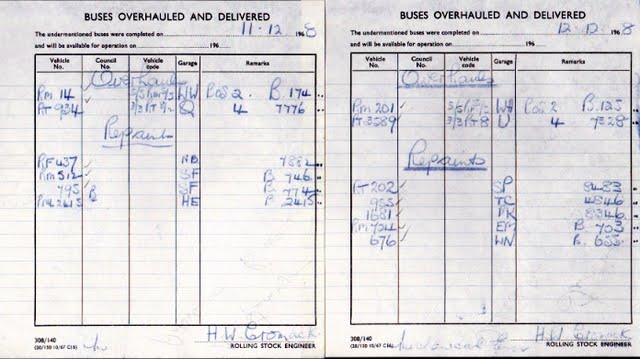 BUSES OVERHAULED AND DELIVERED
The undermentioned buses were completed on 11.12 1968
and will be available for operation on 196
Vehicle No. Council No. Vehicle code Garage Remarks
Overhauls
RM 14 ✓ WW Pos 2. B. 174
RT 934 ✓ Q 4 7776
Repaints
RF 437 ✓ NB 7882
RM 512 ✓ SF B. 746
795 SF B. 774
RML 2415 HE B. 2415
308/140
H.W. Cromack
ROLLING STOCK ENGINEER
BUSES OVERHAULED AND DELIVERED
The undermentioned buses were completed on 12.12 1968
and will be available for operation on 196
Vehicle No. Council No. Vehicle code Garage Remarks
Overhauls
RM 201 ✓ WH Pos 2 B. 125
RT 3589 ✓ 3/3 RT 8 U 4 7328
Repaints
RT 202 ✓ SP 8483
955 ✓ TC 4846
1681 ✓ PK 8346
RM 724 ✓ EM B. 703
676 ✓ WN B. 655
308/140
H.W. Cromack
ROLLING STOCK ENGINEER